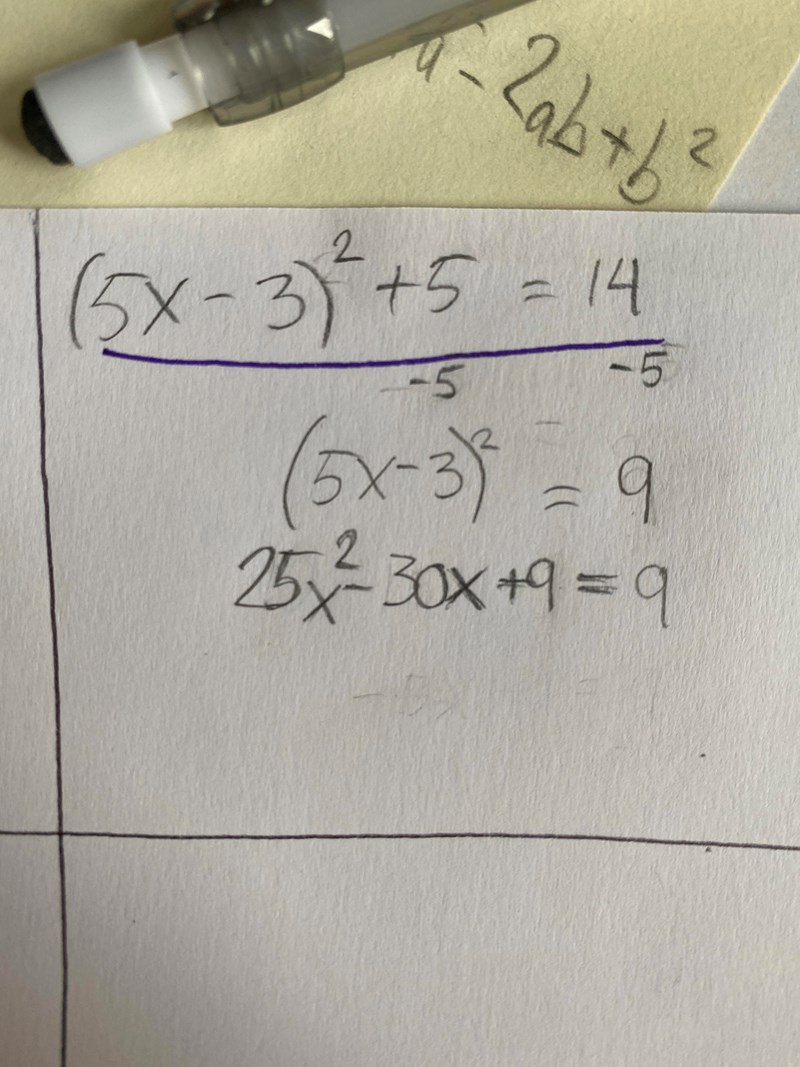 a² - 2ab + b²
(5x - 3)² + 5 = 14
-5 -5
(5x - 3)² = 9
25x² - 30x + 9 = 9